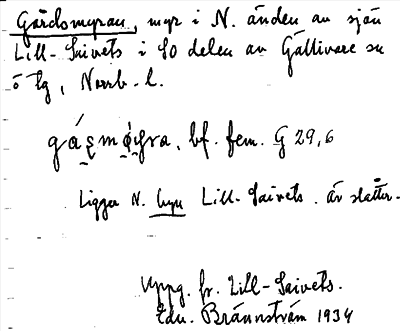 Gårdsmyran, myr i N. änden av sjön
Lill-Saivets i SO delen av Gällivare sn
o lg, Norrb. l.
bf. fem. G 29,6
Ligger N. byn Lill-Saivets. är slåtter.
Uppg. fr. Lill-Saivets.
Edv. Brännström 1934